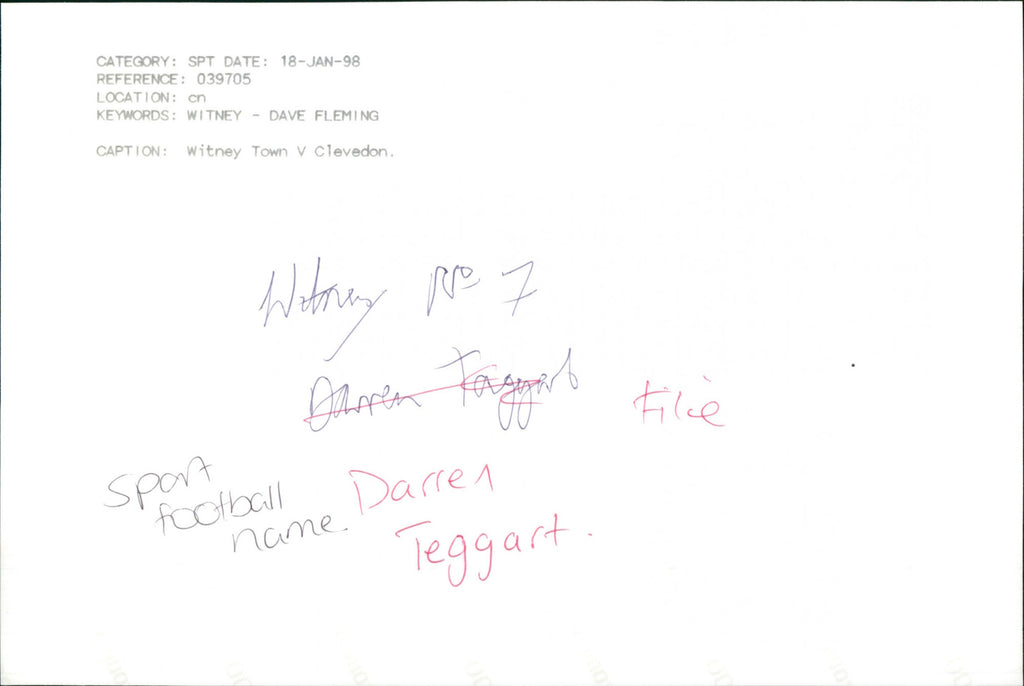 CATEGORY: SPT DATE: 18-JAN-98
REFERENCE: 039705
LOCATION: cn
KEYWORDS: WITNEY - DAVE FLEMING
CAPTION: Witney Town V Clevedon.
Witney No 7
Darren Taggart
File
sport
football
name
Darren
Teggart.